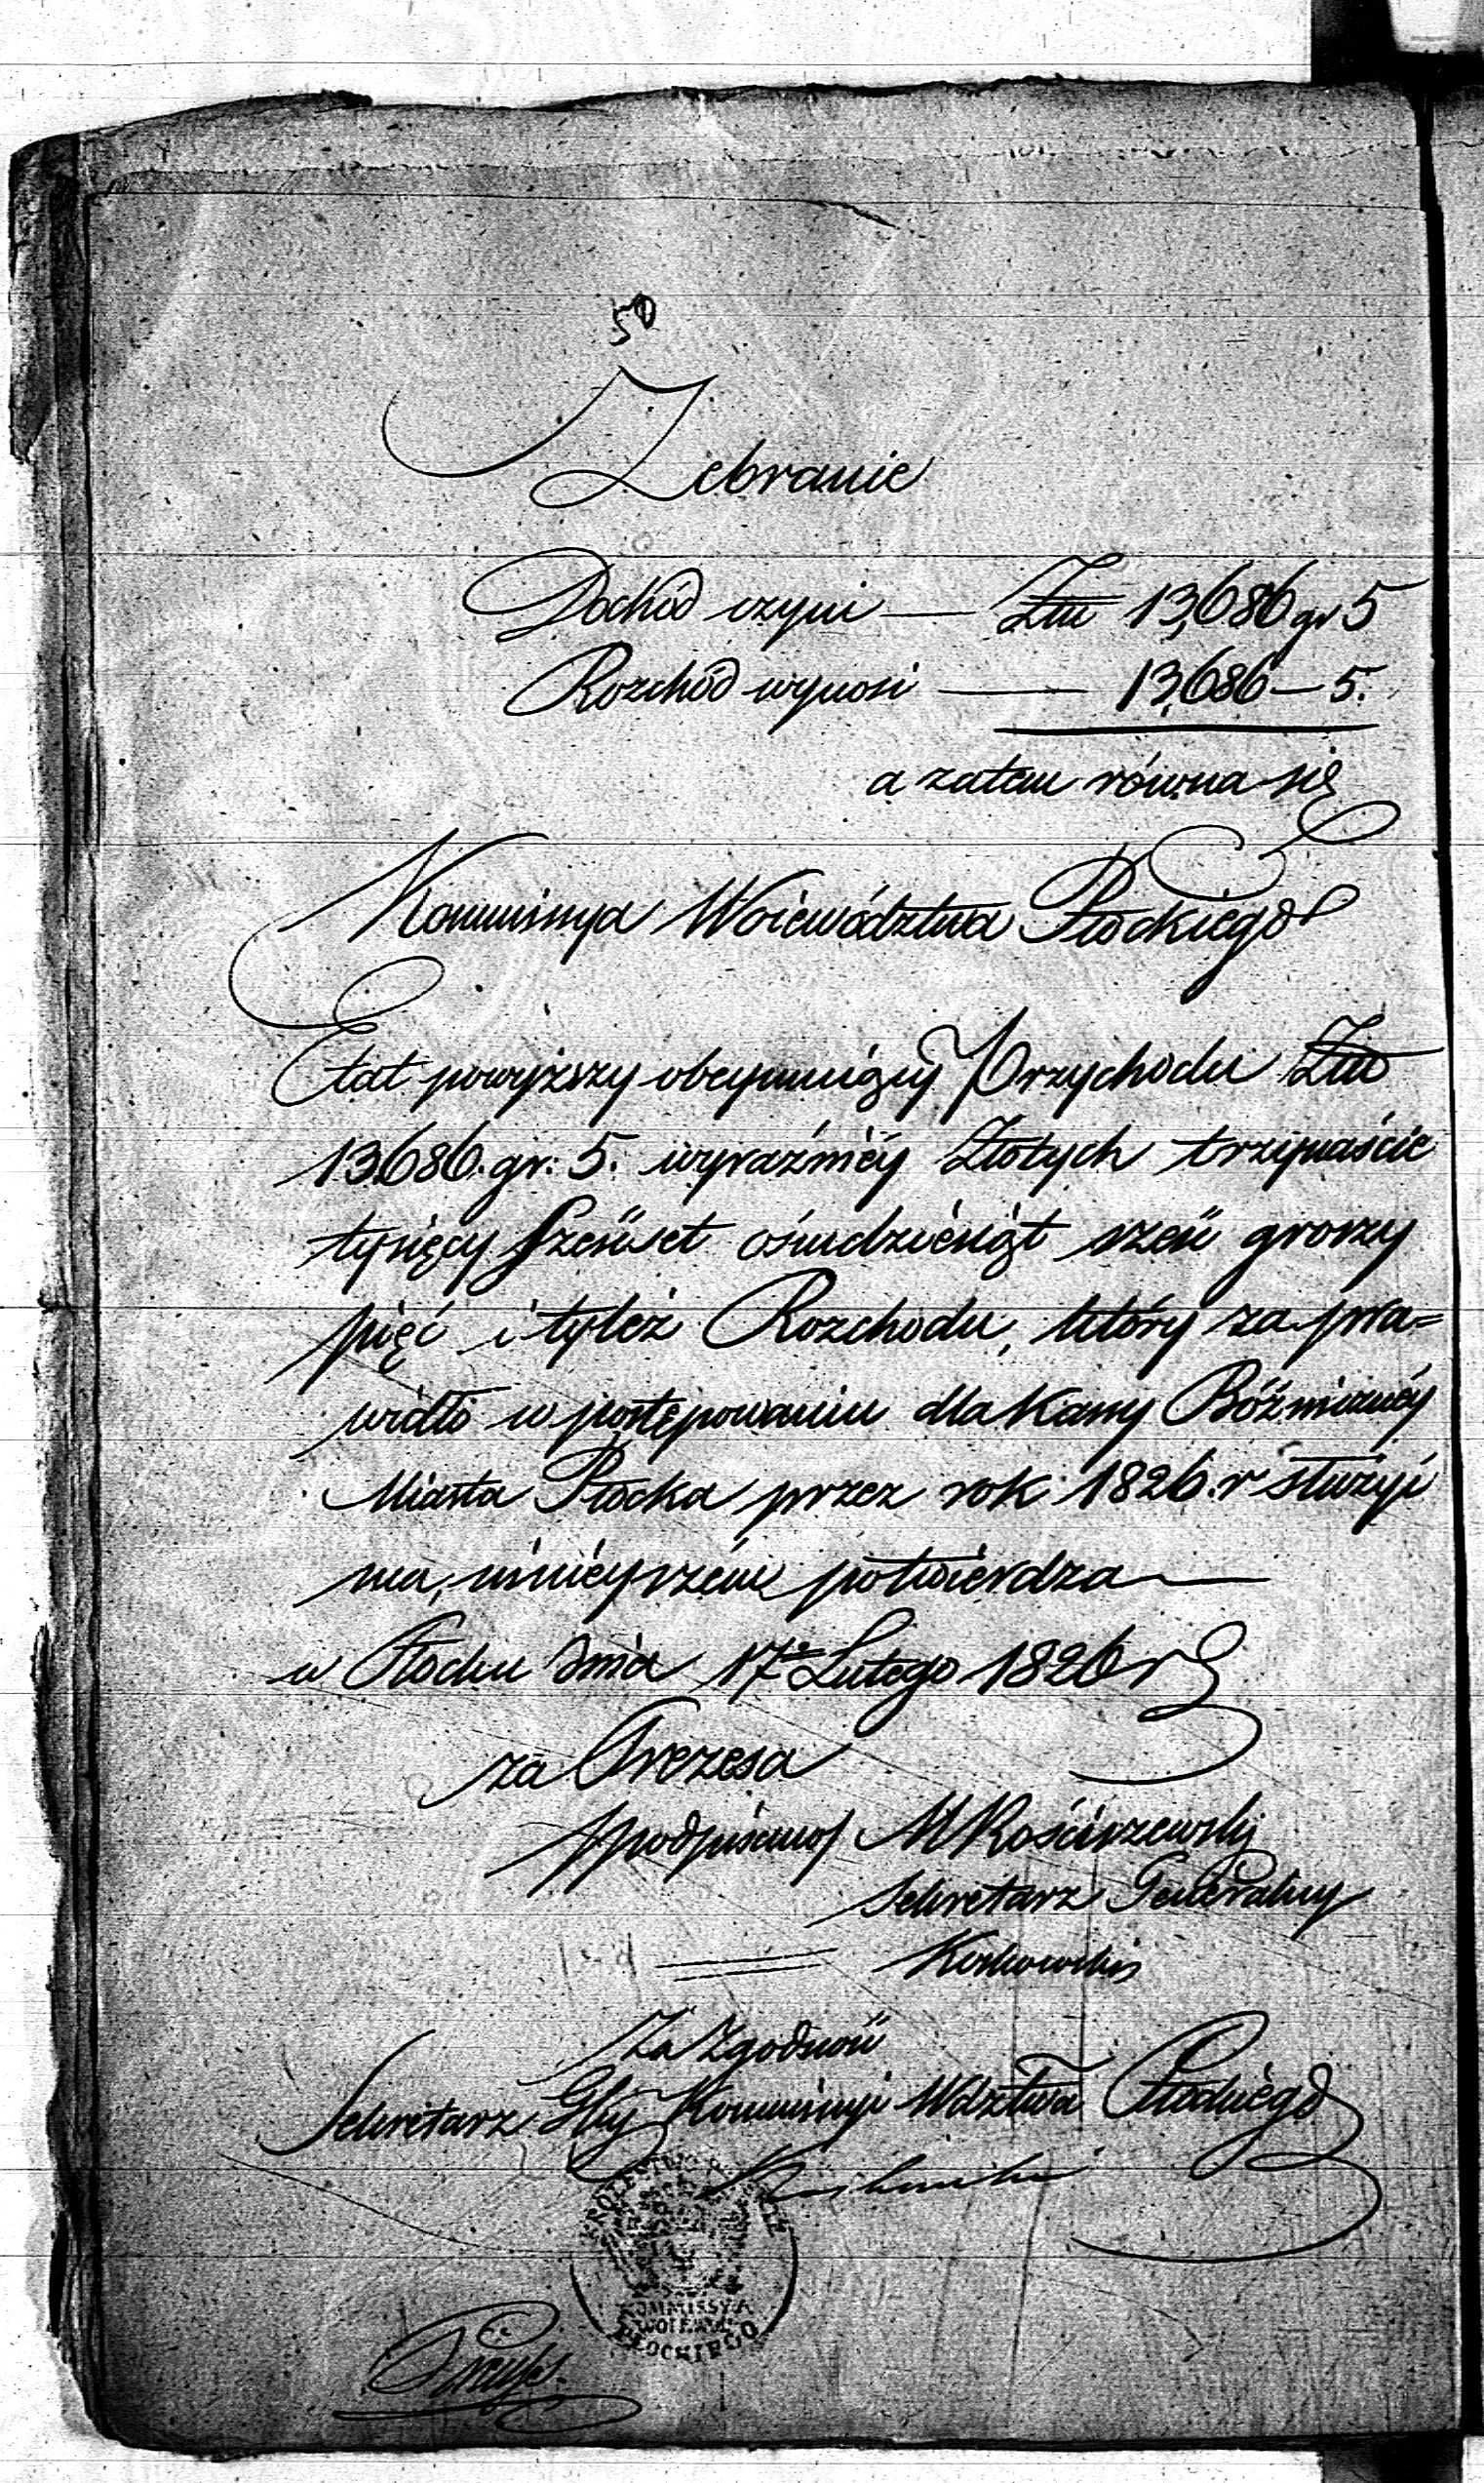 50
Zebranie
Dochód czyni — Złtt 13,686 gr 5
Rozchód wynosi — 13,686 — 5.
a zatem równa się
Kommissya Woiewództwa Płockiego
Etat powyższy obeymuiący Przychodu Złtt
13,686. gr: 5. wyraźniéy Złotych trzynaście
tysięcy sześćset ośmdziesiąt sześć groszy
pięć i tyleż Rozchodu, który za pra=
widło w postępowaniu dla Kassy Bóźniczney
Miasta Płocka przez rok 1826. r służyć
ma, ninieyszém potwierdza —
w Płocku dnia 17º Lutego 1826 r
za Prezesa
/podpisano/ M Rościszewski
Sekretarz Generalny
Koskowski
Za Zgodność
Sekretarz Glny Kommissyi Wdztwa Płockiego
KOMMISSYA
WOIEWÓD:
PŁOCKIEGO